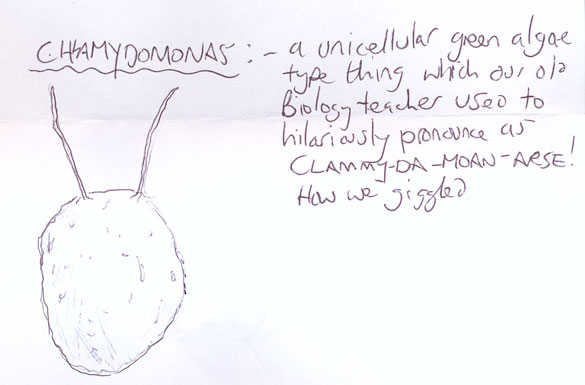 CHLAMYDOMONAS :- a unicellular green algae
type thing which our old
Biology teacher used to
hilariously pronounce as
CLAMMY-DA-MOAN-ARSE!
How we giggled